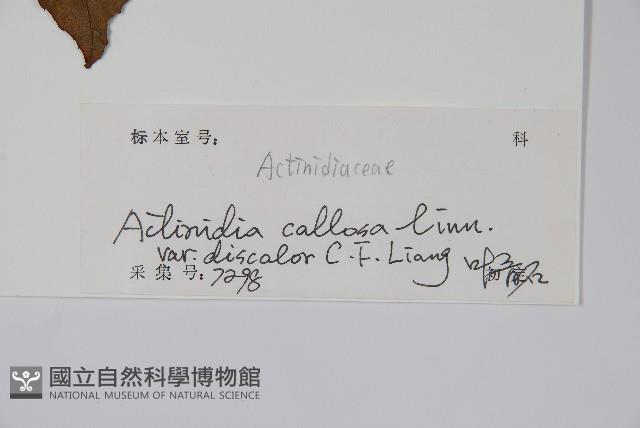 标本室号: 科
Actinidiaceae
Actinidia callosa Linn.
var. discolor C. F. Liang
采集号: 7298
國立自然科學博物館
NATIONAL MUSEUM OF NATURAL SCIENCE